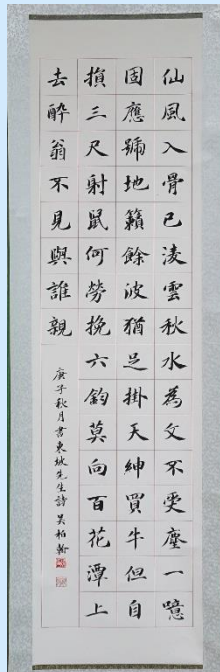 仙風入骨已淩雲秋水為文不受塵一噫
固應號地籟餘波猶足掛天紳買牛但自
損三尺射鼠何勞挽六鈞莫向百花潭上
去醉翁不見與誰親
庚子秋月書東坡先生詩 吳柏翰